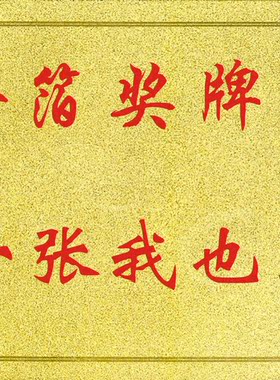 箔奖牌
张我也